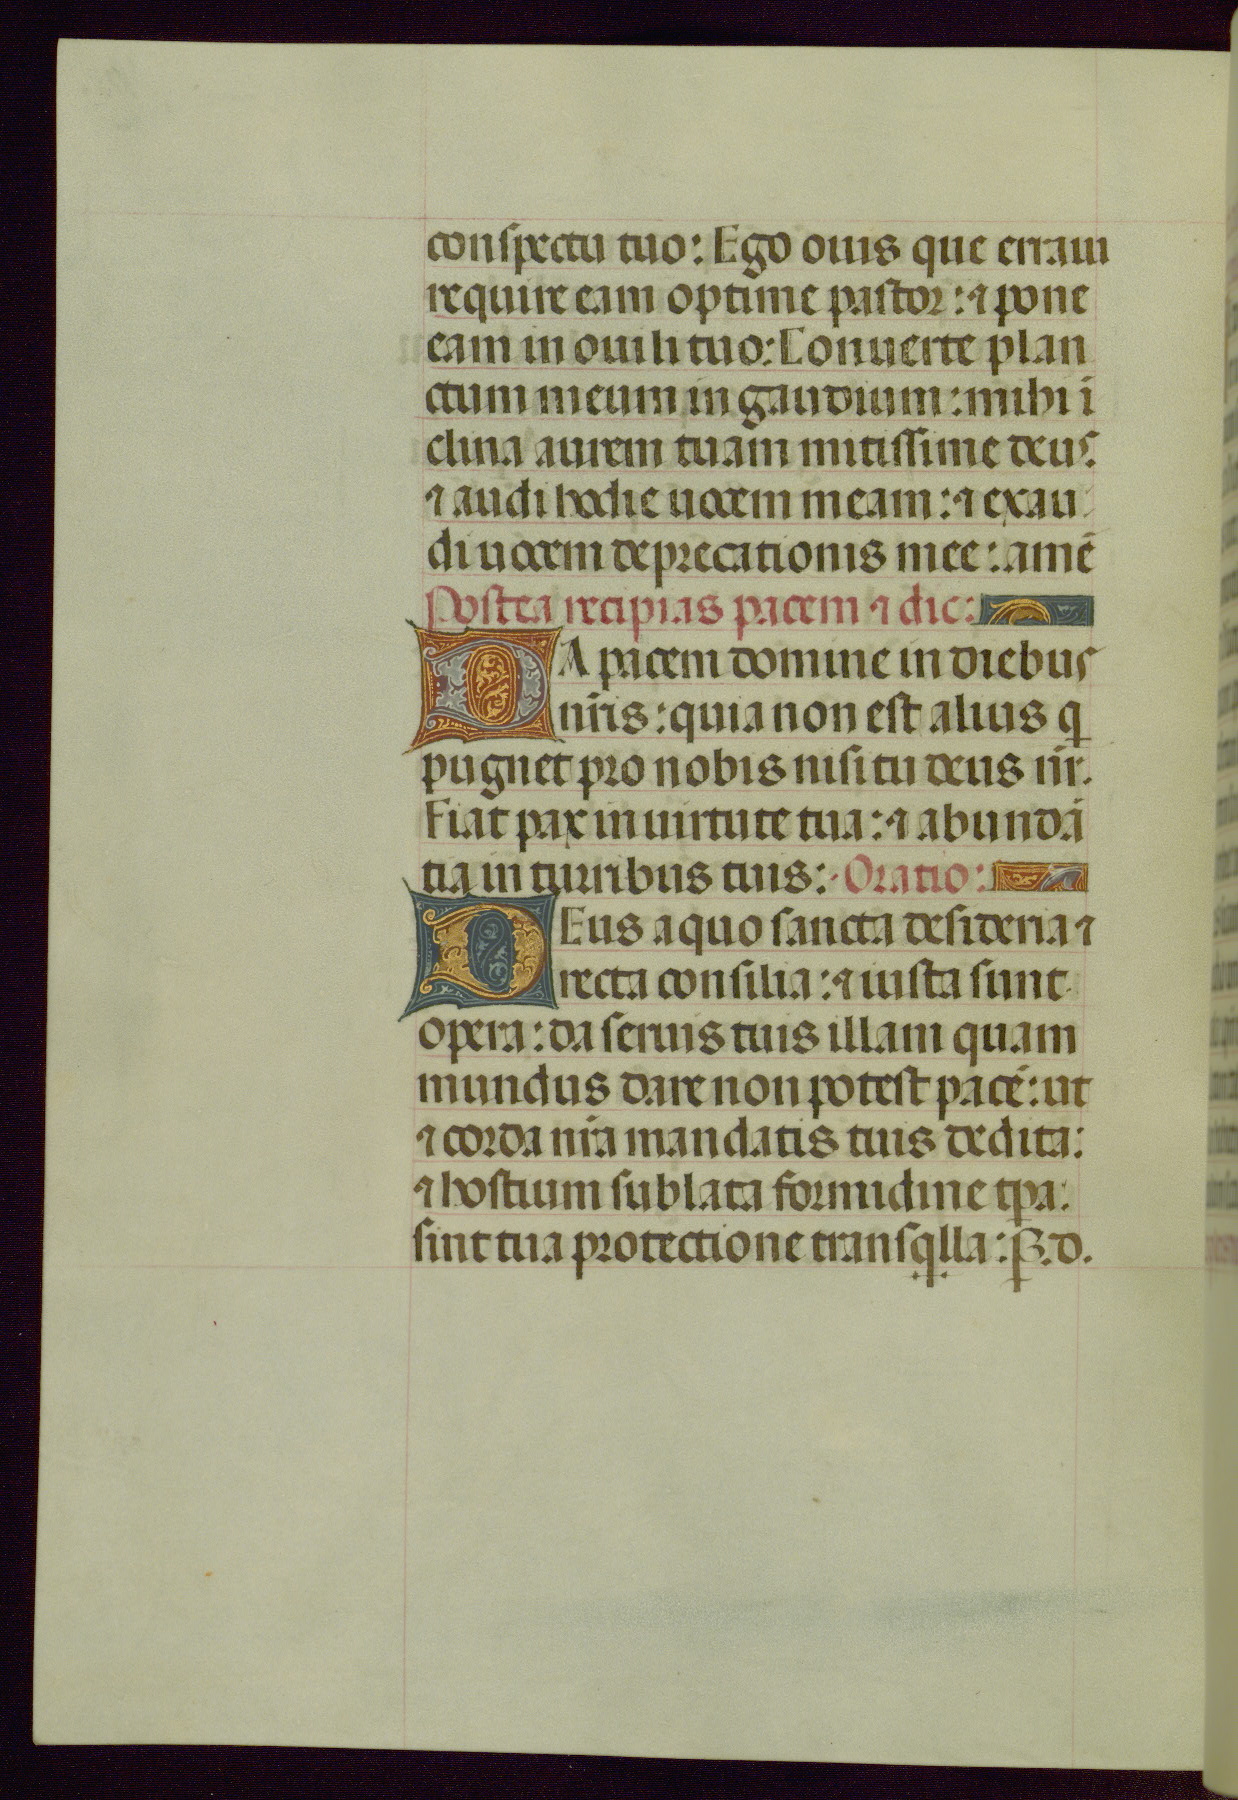 conspectu tuo: Ego ouis que erraui
require eam optime pastor: ⁊ pone
eam in ouili tuo: Conuerte plan
ctum meum in gaudium: mihi ī
clina aurem tuam mitissime deus
⁊ audi hodie uocem meam: ⁊ exau
di uocem deprecationis mee: amē
Postea recipias pacem ⁊ dic:
DA pacem domine in diebus
nr̄is: quia non est alius q̄
pugnet pro nobis nisi tu deus nr̄.
Fiat pax in uirtute tua: ⁊ abundā
tia in turribus tuis: Oratio:
DEus a quo sancta desideria ⁊
recta consilia: ⁊ iusta sunt
opera: da seruis tuis illam quam
mundus dare non potest pacē: ut
⁊ corda nr̄a mandatis tuis dedita:
⁊ hostium sublata formidine tp̄a:
sint tua protectione transq̇lla: P. d.